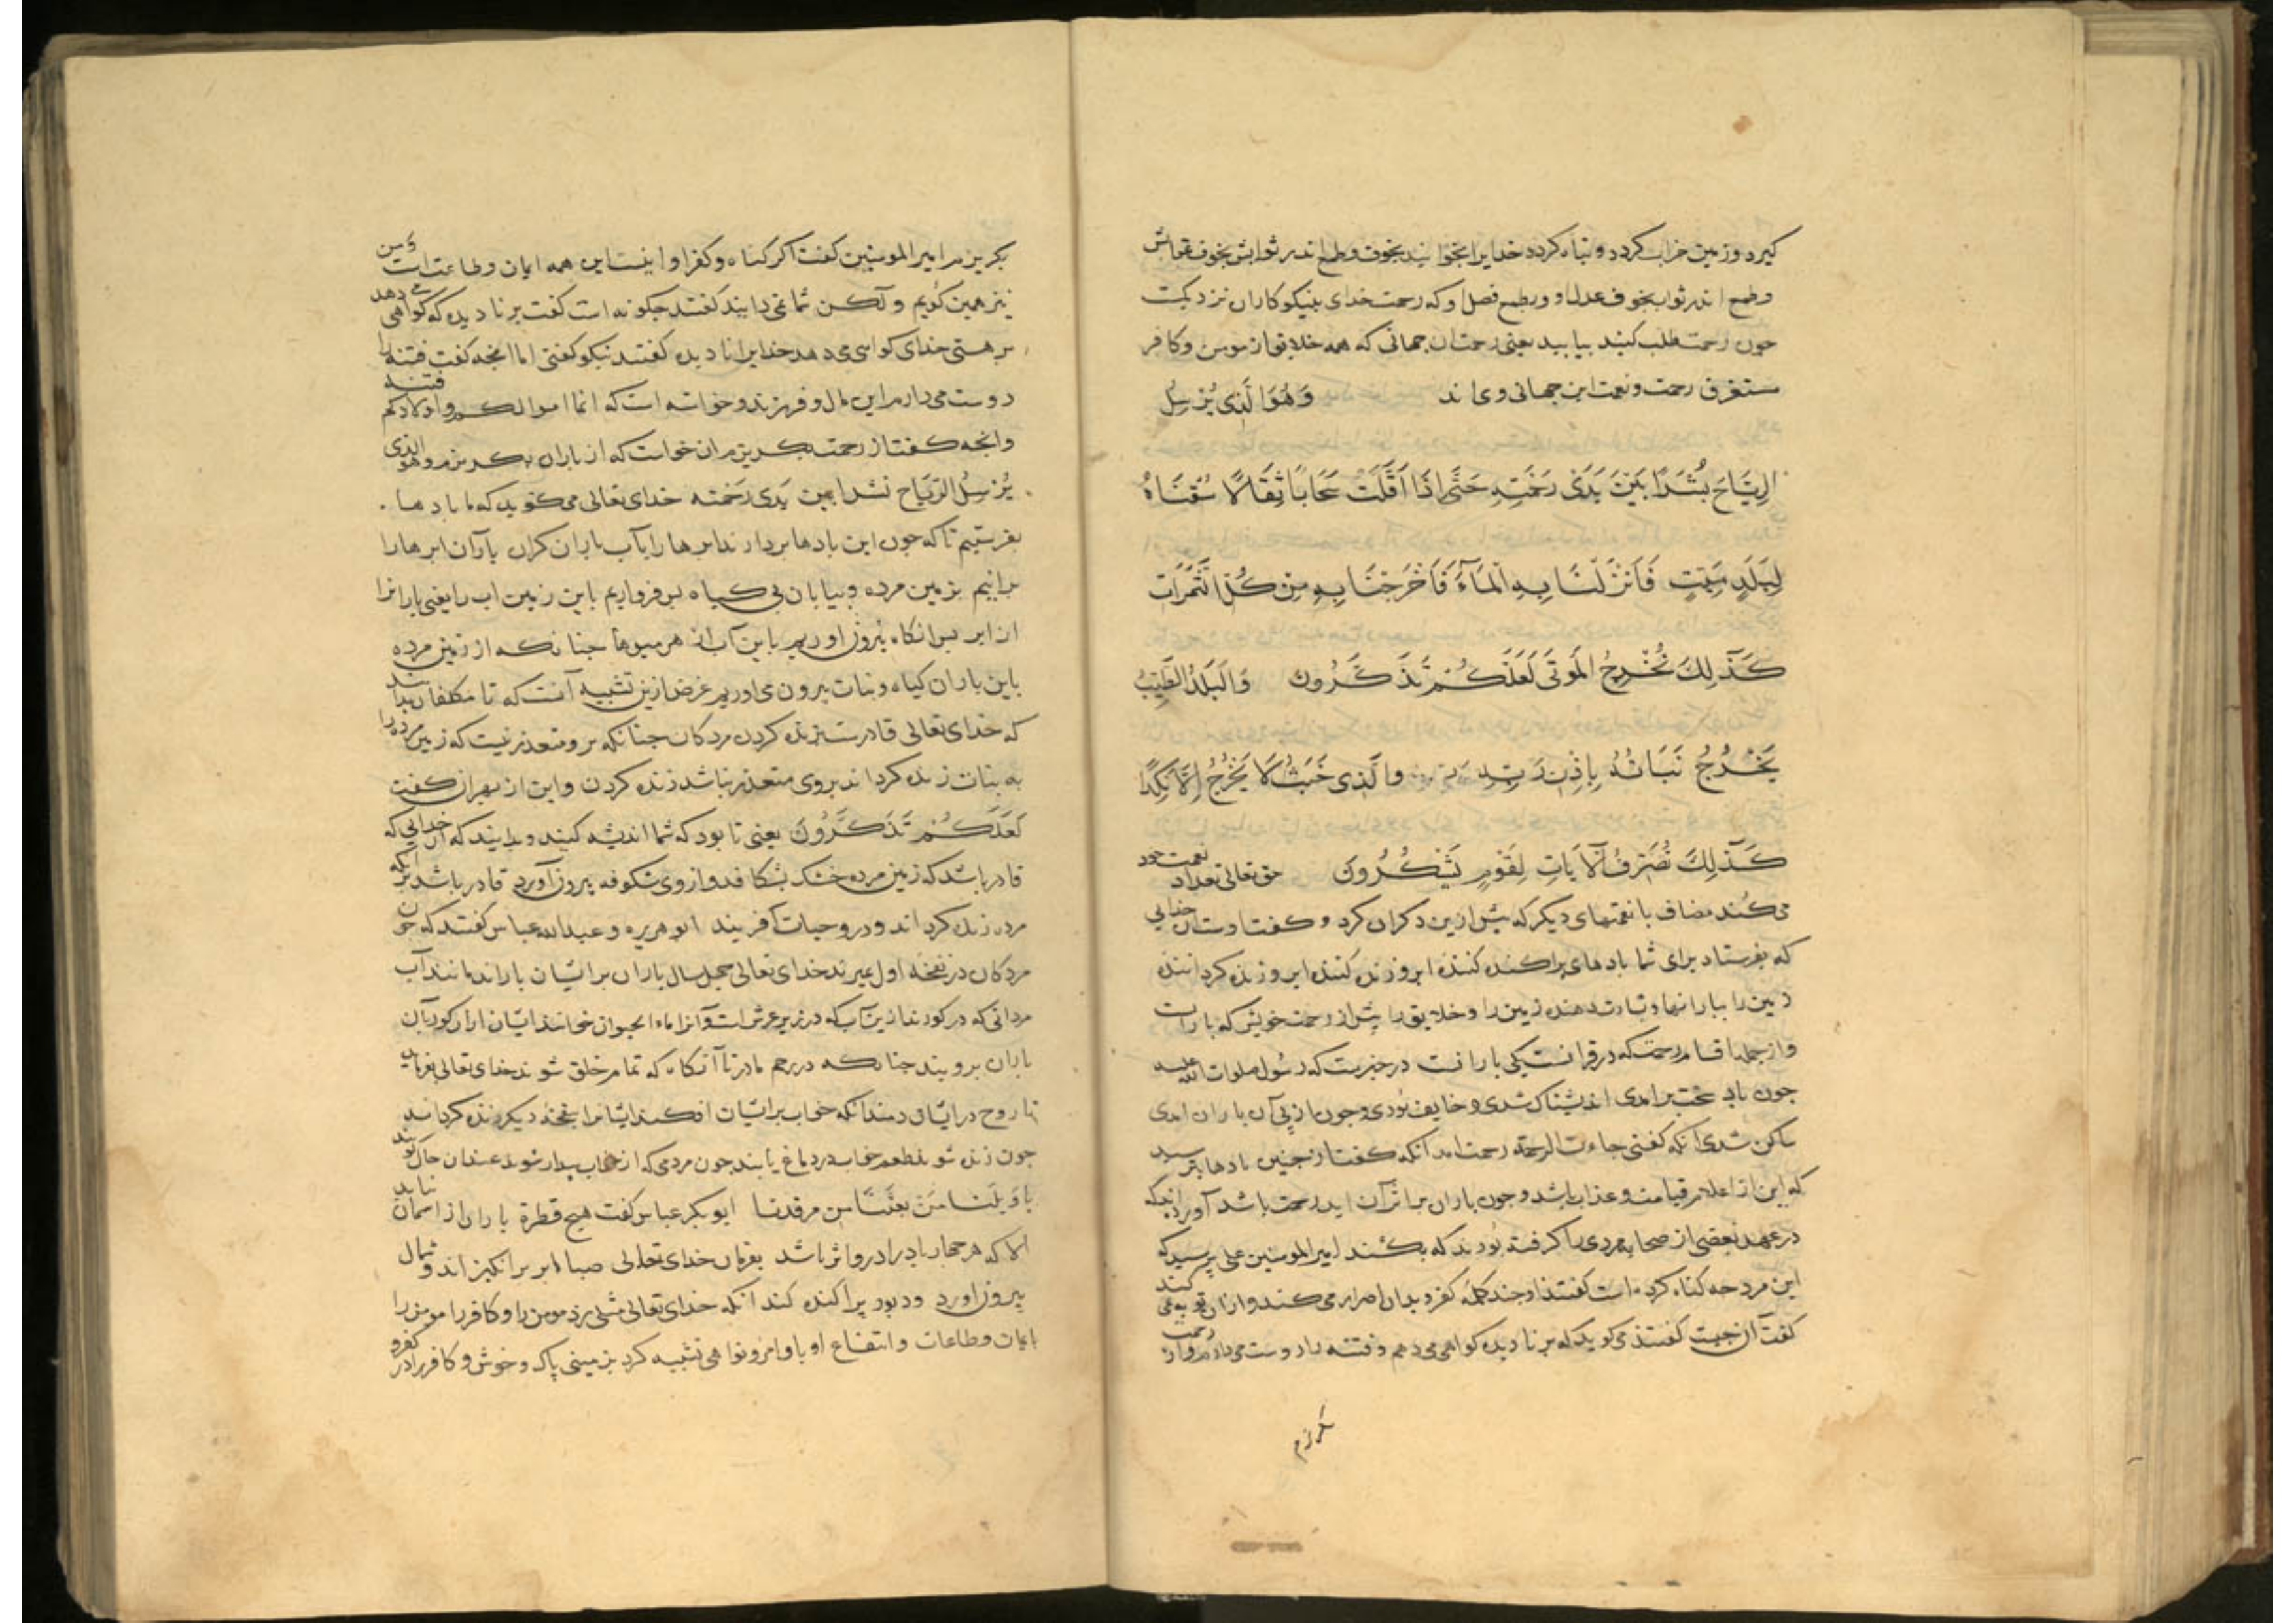 کیرد و زمین خراب کردد و تباه کردد خدایرا بخوانید بخوف و طمع اندر ثوابش بخوف عقابش
و طمع اندر ثواب بخوف عدل او و بطمع فضل او که رحمت خدای بنیکوکاران نزدیکست
چون رحمت طلب کنید بیابید یعنی رحمت آن جهانی که همه خلایق از مومن و کافر
مستغرق رحمت و نعمت این جهانی وی اند وَهُوَ الَّذِی یُرْسِلُ
الرِّیَاحَ بُشْرًا بَیْنَ یَدَیْ رَحْمَتِهِ حَتَّی اِذَا اَقَلَّتْ سَحَابًا ثِقَالًا سُقْنَاهُ
لِبَلَدٍ مَیِّتٍ فَاَنْزَلْنَا بِهِ الْمَآءَ فَاَخْرَجْنَا بِهِ مِنْ کُلِّ الثَّمَرَاتِ
کَذٰلِکَ نُخْرِجُ الْمَوْتَی لَعَلَّکُمْ تَذَکَّرُونَ وَالْبَلَدُ الطَّیِّبُ
یَخْرُجُ نَبَاتُهُ بِاِذْنِ رَبِّهِ وَالَّذِی خَبُثَ لَا یَخْرُجُ اِلَّا نَکِدًا
کَذٰلِکَ نُصَرِّفُ الْآیَاتِ لِقَوْمٍ یَشْکُرُونَ حق تعالی تعداد نعمت خود
می کند مضاف با نعمتهای دیکر که پیش ازین ذکر آن کرد و کفت اوست آن خدایی
که بفرستاد برای شما بادهای پراکنده کنندۀ ابر و زنده کنندۀ ابر و زنده کرداننده
زمین را ببارانها و بشارت دهنده زمین را و خلایق را پیش از رحمت خویش که بارانست
و از جمله اقسام رحمت که در قرانست یکی بارانست در خبرست که رسول صلوات الله علیه
چون باد سخت برامدی اندیشناک شدی و خایف بودی و چون از پی آن باران امدی
ساکن شدی آنکه کفتی جاءت الرحمة رحمت امد آنکه کفت از چنین بادها بترسید
که این از اعلام قیامت و عذاب باشد و چون باران بر اثر آن اید رحمت باشد آورده اند که
در عهد بعضی از صحابه مردی را کرفته بودند که بکشند امیرالمومنین علی پرسید که
این مرد چه کناه کرده است کفتند او چند کلمۀ کفر و بدان اصرار می کند و از آن توبه نمی کند
کفت آن چیست کفتند می کوید که بر نادیده کواهی می دهم و فتنه را دوست می دارم و از رحمت
بکریزم امیرالمومنین کفت اکر کناه و کفر او اینست این همه ایمان و طاعتست و من
نیز همین کویم ولکن شما نمی دانید کفتند چکونه است کفت بر نادیده که کواهی می دهد
بر هستی خدای کواهی می دهد خدایرا نادیده کفتند نیکو کفتی اما انچه کفت فتنه را
دوست می دارم این مال و فرزند و خواسته است که انما اموالکم و اولادکم فتنه
وانچه کفت از رحمت بکریزم ان خواست که از باران بکریزم وهو الذی
یُرْسِلُ الرِّیَاح نشرا بین یَدَی رَحْمَته خدای تعالی می کوید که ما بادها
بفرستیم تا که چون این بادها بردارند ابرها را بآب باران کران بارآن ابرها را
برانیم بزمین مرده و بیابان بی کیاه پس فرواریم باین زمین اب را یعنی بارانرا
از ابر پس انکاه بیرون اوریم باین آب از هر میوها چنانکه از زمین مرده
باین باران کیاه و نبات بیرون می اوریم غرض ازین تشبیه آنست که تا مکلفان بدانند
که خدای تعالی قادرست بزنده کردن مردکان چنانکه برو متعذر نیست که زمین مرده را
به نبات زنده کرداند بروی متعذر نباشد زنده کردن و این از بهر ان کفت
لَعَلَّکُمْ تَذَکَّرُونَ یعنی تا بود که شما اندیشه کنید و بدانید که آن خدایی که
قادر باشد که زمین مرده خشک بشکافد و از وی شکوفه بیرون آورد قادر باشد برآنکه
مرده زنده کرداند و درو حیات آفریند ابو هریره و عبدالله عباس کفتند که چون
مردکان در نفخۀ اول بمیرند خدای تعالی چهل سال باران بر ایشان باراند مانند آب
مردانی که در کور از آن آب که در زیر عرش است و آنرا ماء الحیوان خوانند ایشان از ان کور بآن
باران برویند چنانکه در رحم مادر تا آنکاه که تمام خلق شوند خدای تعالی بفرماید
تا روح در ایشان دمند انکه خواب بر ایشان افکند ایشانرا بنفخۀ دیکر زنده کرداند
چون زنده شوند طعم خواب در دماغ یابند چون مردی که از خواب بیدار شوند عند آن حال کویند
یا وَیْلَنا مَنْ بَعَثَنَا مِن مرقدنا ابو بکر عباس کفت هیچ قطرۀ باران از اسمان نیاید
الا که هر چهار باد را درو اثر باشد بفرمان خدای تعالی صبا ابر برانکیزاند و شمال
بیرون اورد و دبور پراکنده کند انکه خدای تعالی مثلی زد مومن را و کافر را مومن را
بایمان و طاعات و انتفاع او باوامر و نواهی تشبیه کرد بزمینی پاک و خوش و کافر را در کفر و